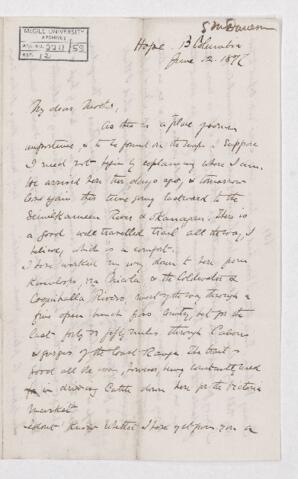 G M Dawson
McGILL UNIVERSITY
ARCHIVES
ACC. NO. 2211 / 59
REF. 12
Hope, B Columbia
June 12. 1877
My dear Mother,
As this is a place of some
importance, & to be found on the maps I suppose
I need not begin by explaining where I am.
We arrived here three days ago, & tomorrow
leave again this time going eastward to the
Similkameen River & Okanagan. There is
a good well travelled trail all the way, I
believe, which is a comfort.
I have worked my way down to here from
Kamloops, via Nicola & the Coldwater &
Coquihalla Rivers, most of the way through a
fine open bunch grass country, but for the
last forty or fifty miles through Cañons
& gorges of the Coast Range. The trail is
good all the way, however being constantly used
in driving Cattle down here for the Victoria
market
I dont know whether I have yet given you a